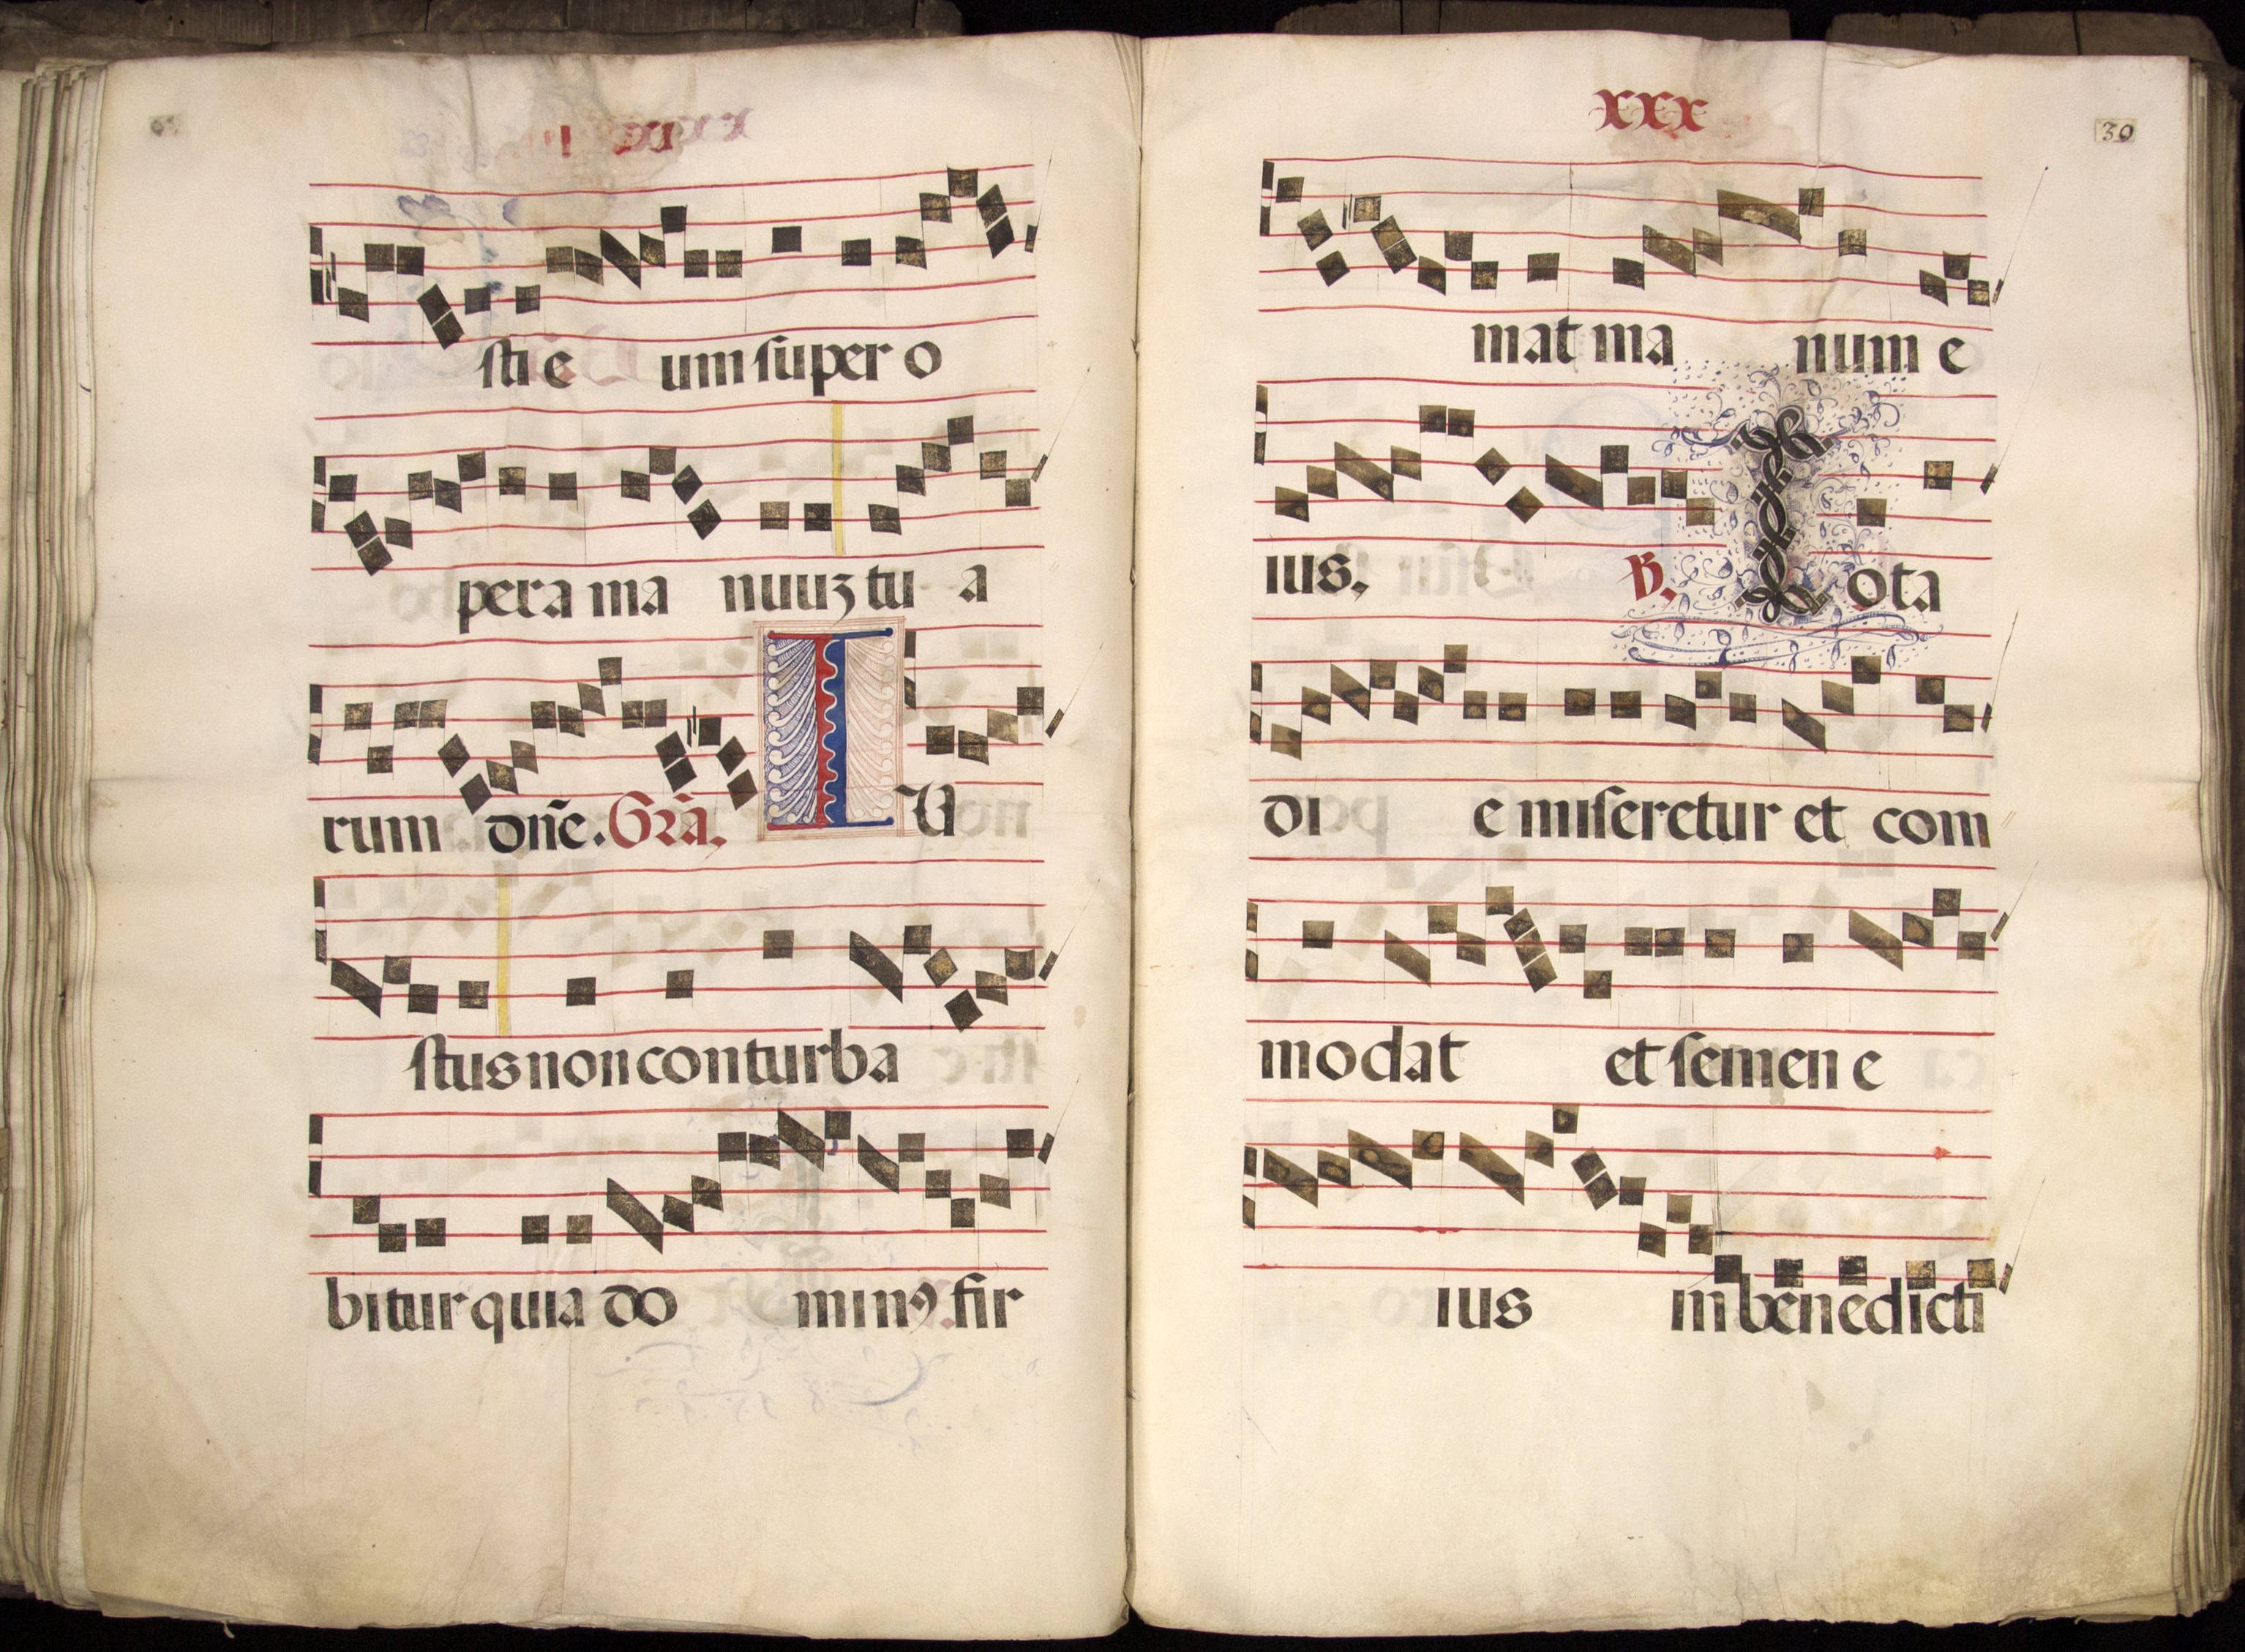 sti e um super o
pera ma nuuz tu a
rum dñe. Gra. I U
stus non conturba
bitur quia do minꝰ fir
xxx
30
mat ma num e
ius. V. T ota
di e miseretur et com
modat et semen e
ius in benedicti